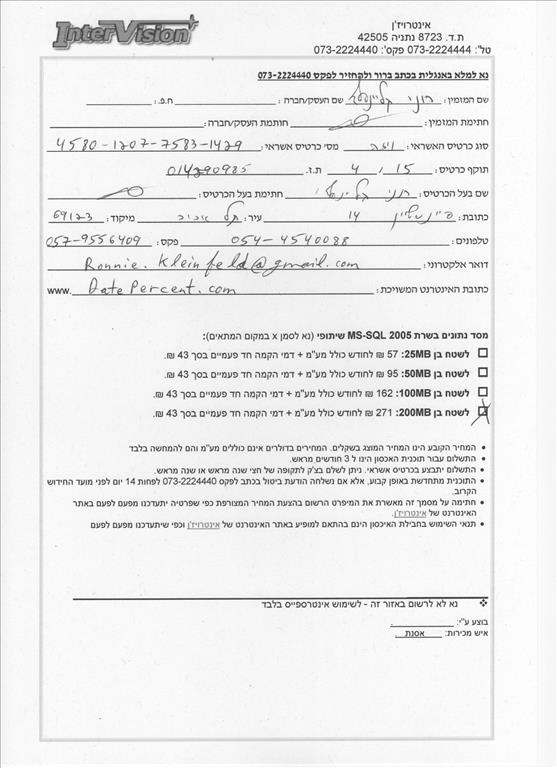 InterVision
אינטרויז'ן
ת.ד. 8723 נתניה 42505
טל': 073-2224444 פקס': 073-2224440
נא למלא באנגלית בכתב ברור ולהחזיר לפקס 073-2224440
שם המזמין: רוני קליינפלד שם העסק/חברה: ח.פ.:
חתימת המזמין: חותמת העסק/חברה:
סוג כרטיס האשראי: ויזה מס' כרטיס אשראי: 4580-1207-7583-1429
תוקף כרטיס: 15 / 4 ת.ז. 014290985
שם בעל הכרטיס: רוני קליינפלד חתימת בעל הכרטיס:
כתובת: 14 עיר: תל אביב מיקוד: 69123
טלפונים: 054-4540088 פקס: 057-9556409
דואר אלקטרוני: Ronnie.Kleinfeld@gmail.com
כתובת האינטרנט המשויכת: www. DatePercent.com
מסד נתונים בשרת MS-SQL 2005 שיתופי (נא לסמן x במקום המתאים):
לשטח בן 25MB: 57 ₪ לחודש כולל מע"מ + דמי הקמה חד פעמיים בסך 43 ₪.
לשטח בן 50MB: 95 ₪ לחודש כולל מע"מ + דמי הקמה חד פעמיים בסך 43 ₪.
לשטח בן 100MB: 162 ₪ לחודש כולל מע"מ + דמי הקמה חד פעמיים בסך 43 ₪.
לשטח בן 200MB: 271 ₪ לחודש כולל מע"מ + דמי הקמה חד פעמיים בסך 43 ₪.
המחיר הקובע הינו המחיר המוצג בשקלים. המחירים בדולרים אינם כוללים מע"מ והם להמחשה בלבד
התשלום עבור תוכנית האכסון הינו ל 3 חודשים מראש.
התשלום יתבצע בכרטיס אשראי. ניתן לשלם בצ'ק לתקופה של חצי שנה מראש או שנה מראש.
התוכנית מתחדשת באופן קבוע, אלא אם נשלחה הודעת ביטול בכתב לפקס 073-2224440 לפחות 14 יום לפני מועד החידוש
הקרוב.
חתימה על מסמך זה מאשרת את המיפרט הרשום בהצעת המחיר המצורפת כפי שפרטיה יתעדכנו מפעם לפעם באתר
האינטרנט של אינטרויז'ן.
תנאי השימוש בחבילת האיכסון הינם בהתאם למופיע באתר האינטרנט של אינטרויז'ן וכפי שיתעדכנו מפעם לפעם
נא לא לרשום באזור זה - לשימוש אינטרספייס בלבד
בוצע ע"י:
איש מכירות: אסנת